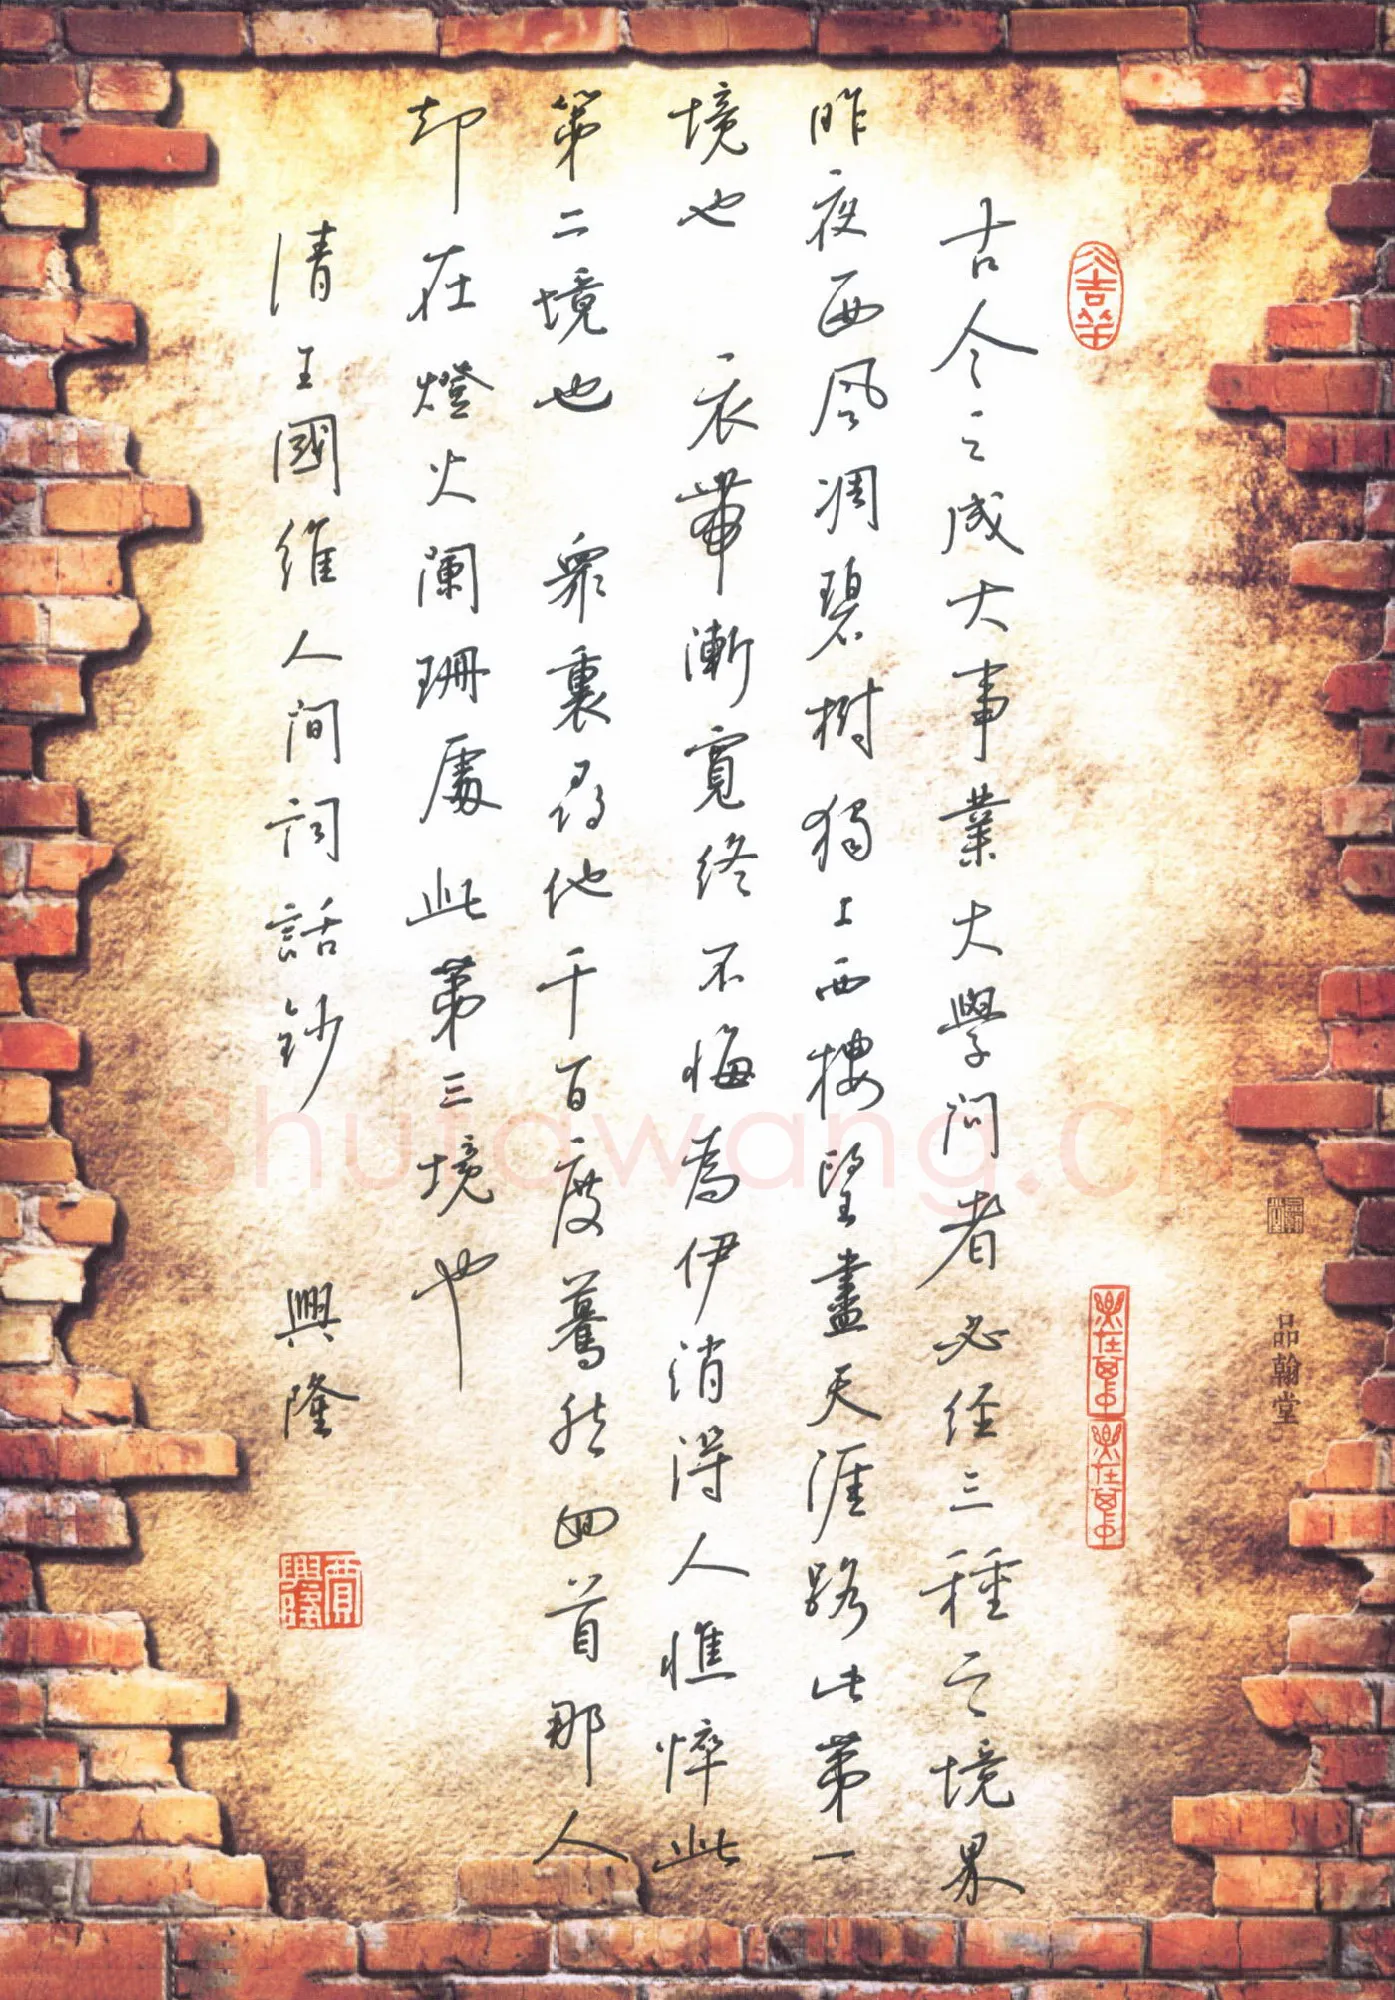 古今之成大事業大學问者必经三種之境界
昨夜西风凋碧樹獨上西樓望盡天涯路此第一
境也 衣帶漸寬終不悔為伊消得人憔悴此
第二境也 衆裏尋他千百度驀然回首那人
却在燈火阑珊處此第三境也
清王國維人间词話鈔 興隆
賈興隆
品翰堂
Shufawang.cn